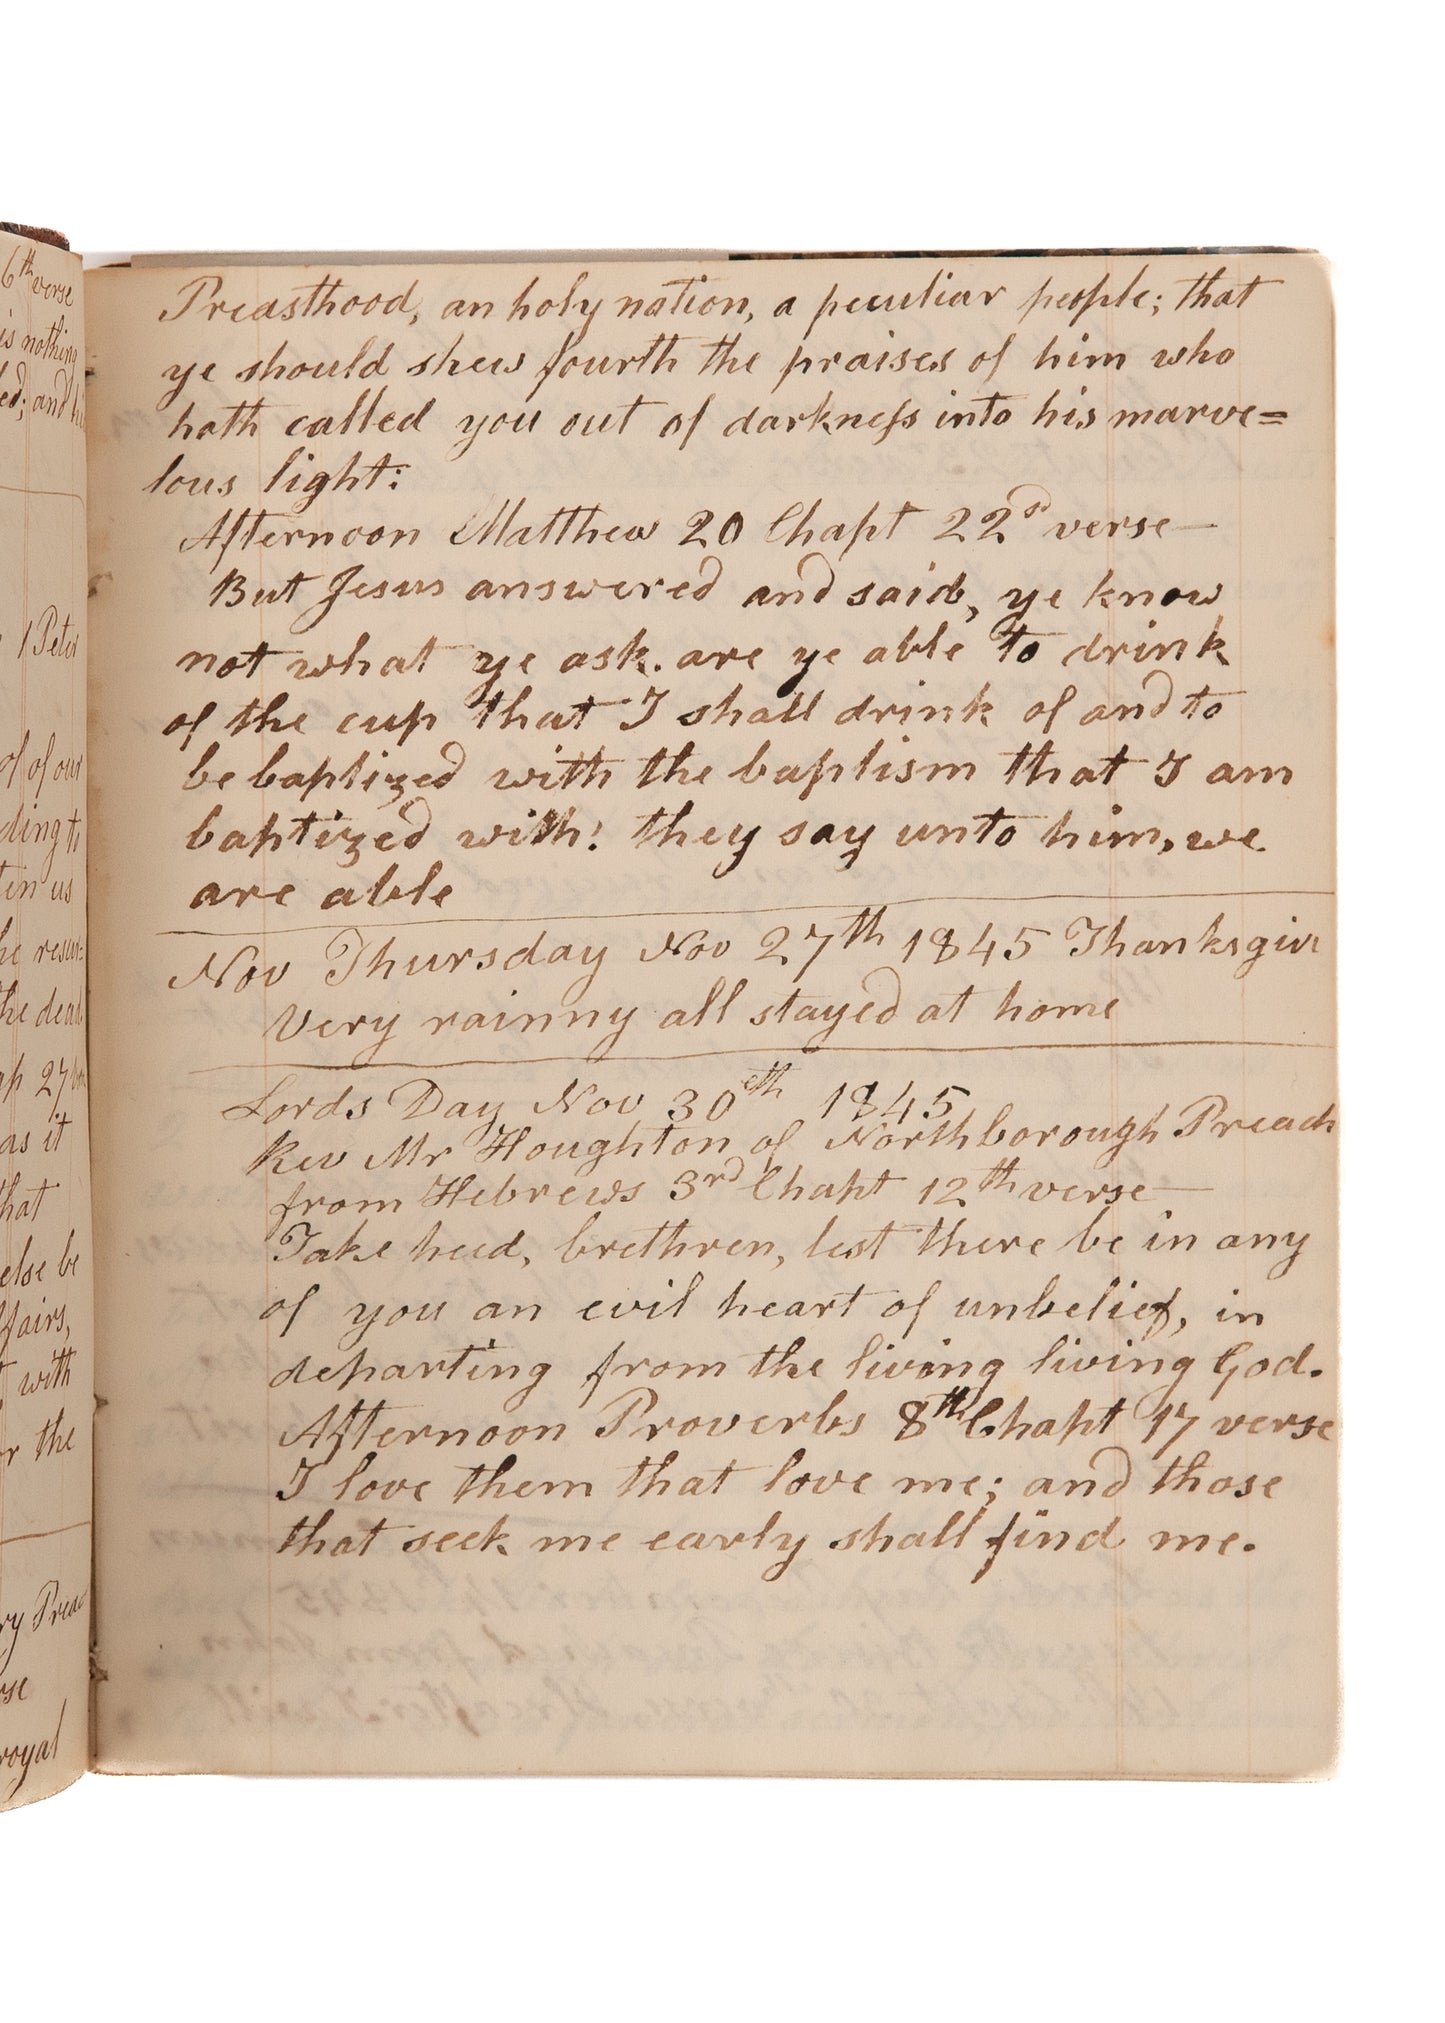 6th verse
is nothing
ed; and hi
1 Peter
of of our
ding to
ten us
he resur:
the dead
ap 27
as it
that
else be
ffairs,
t with
or the
ry Preac
rse
royal
Preasthood, an holy nation, a peculiar people; that
ye should shew fourth the praises of him who
hath called you out of darkness into his marve=
lous light:
Afternoon Matthew 20 Chapt 22d verse—
But Jesus answered and said, ye know
not what ye ask. are ye able to drink
of the cup that I shall drink of and to
be baptized with the baptism that I am
baptized with: they say unto him, we
are able
Nov Thursday Nov 27th 1845 Thanksgivi
Very rainny all stayed at home
Lords Day Nov 30eth 1845
Rev Mr Houghton of Northborough Preach
from Hebrews 3rd Chapt 12th verse—
Take heed, brethren, lest there be in any
of you an evil heart of unbelief, in
departing from the living living God.
Afternoon Proverbs 8th Chapt 17 verse
I love them that love me; and those
that seek me early shall find me.